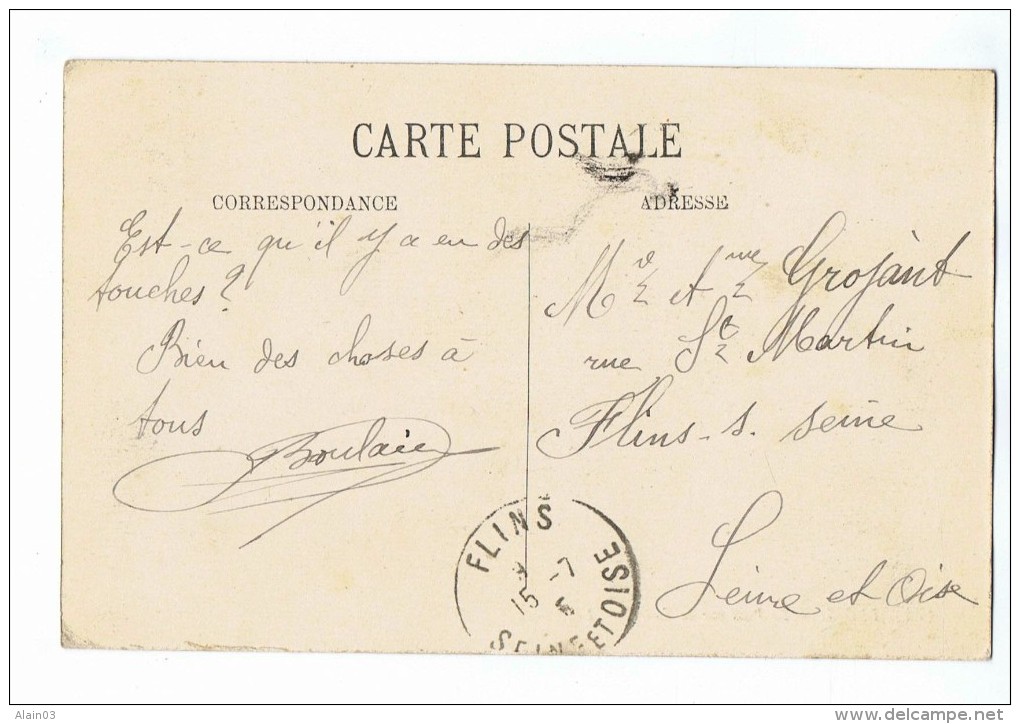 CARTE POSTALE
CORRESPONDANCE
Est-ce qu'il y a eu des
touches ?
Bien des choses à
tous
Boulaie
ADRESSE
Mr et Mme Grojant
rue St Martin
Flins-s. seine
Seine et Oise
FLINS
15 -7
SEINE ET OISE
Alain03
www.delcampe.net